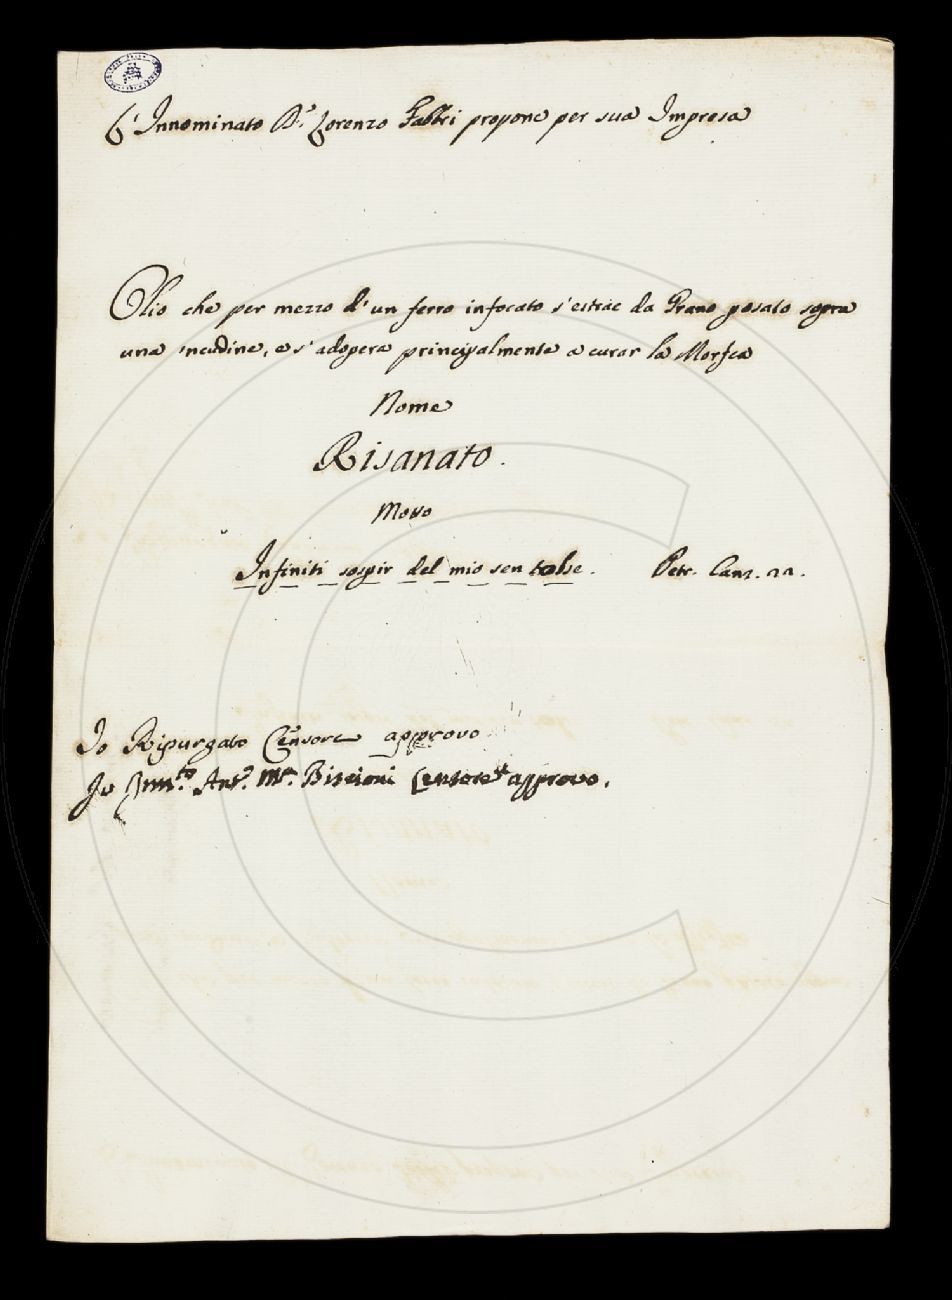 L'Innominato D.r Lorenzo Fabbri propone per sua Impresa
Olio che per mezzo d'un ferro infocato s'estrae da Grano posato sopra
una incudine, e s'adopera principalmente a curar la Morfea
Nome
Risanato.
Motto
Infiniti sospir del mio sen tolse. Petr. Canz. 22.
Io Ripurgato Censore approvo
Io Innto. Ant.o M.a Biscioni Censore approvo.